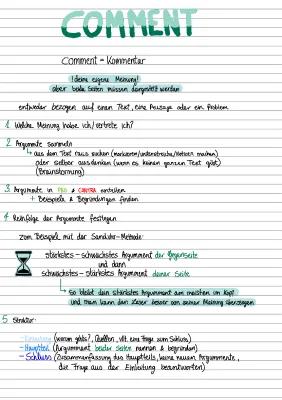 COMMENT
Comment = Kommentar
! deine eigene Meinung!
aber beide Seiten müssen dargestellt werden
entweder bezogen auf einen Text, eine Aussage oder ein Problem
1. Welche Meinung habe ich/vertrete ich?
2. Argumente sammeln
↳ aus dem Text raus suchen (markieren/unterstreichen/Notizen machen)
oder selber ausdenken (wenn es keinen ganzen Text gibt)
(Brainstorming)
3. Argumente in PRO & CONTRA einteilen
+ Beispiele & Begründungen finden
4. Reihenfolge der Argumente festlegen
zum Beispiel mit der Sanduhr-Methode:
stärkstes - schwächstes Argument der Gegenseite
und dann
schwächstes - stärkstes Argument deiner Seite
↳ So bleibt dein stärkstes Argument am meisten im Kopf
und man kann den Leser besser von seiner Meinung überzeugen
5. Struktur:
- Einleitung (worum geht's?, Quellen, vllt. eine Frage zum Schluss)
- Hauptteil (Argument beider Seiten nennen & begründen)
- Schluss (Zusammenfassung des Hauptteils, keine neuen Argumente,
die Frage aus der Einleitung beantworten)